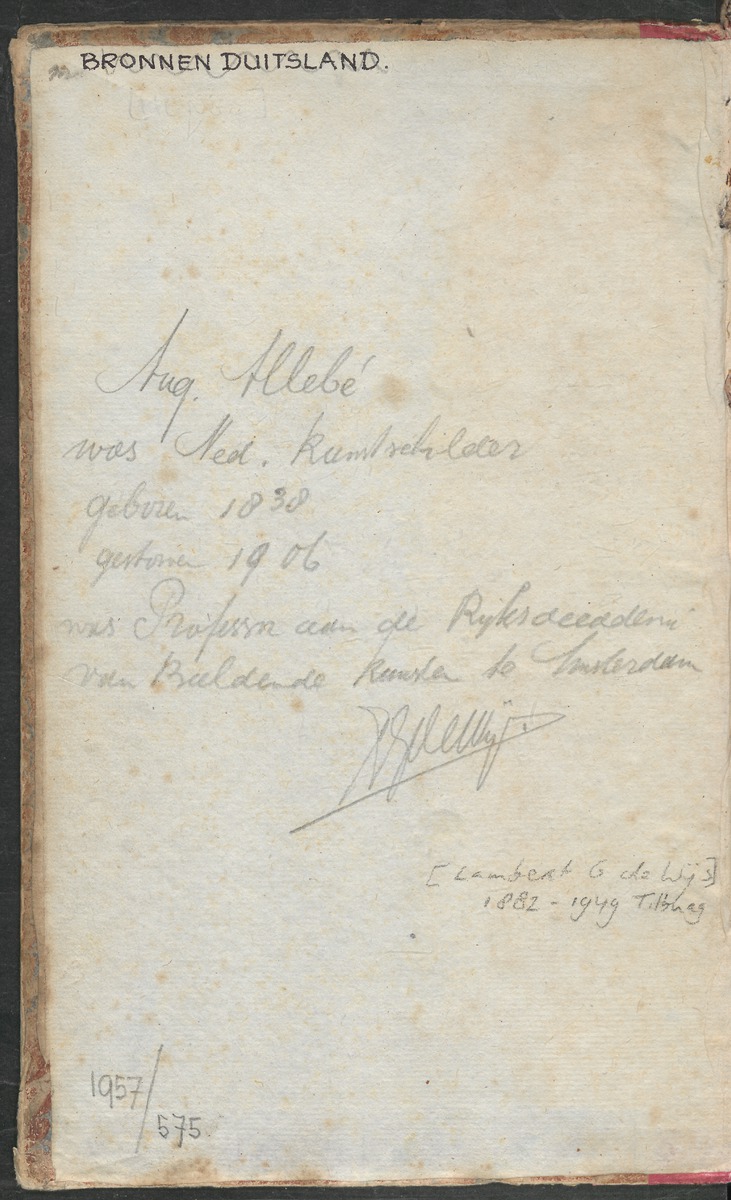 BRONNEN DUITSLAND.
Aug. Allebé
was Ned. Kunstschilder
geboren 1838
gestorven 1906
was Professor aan de Rijksacademi
van Beeldende Kunsten te Amsterdam
LGdeWijs
[Lambert G de Wijs]
1882 - 1949 Tilburg
1957/
575